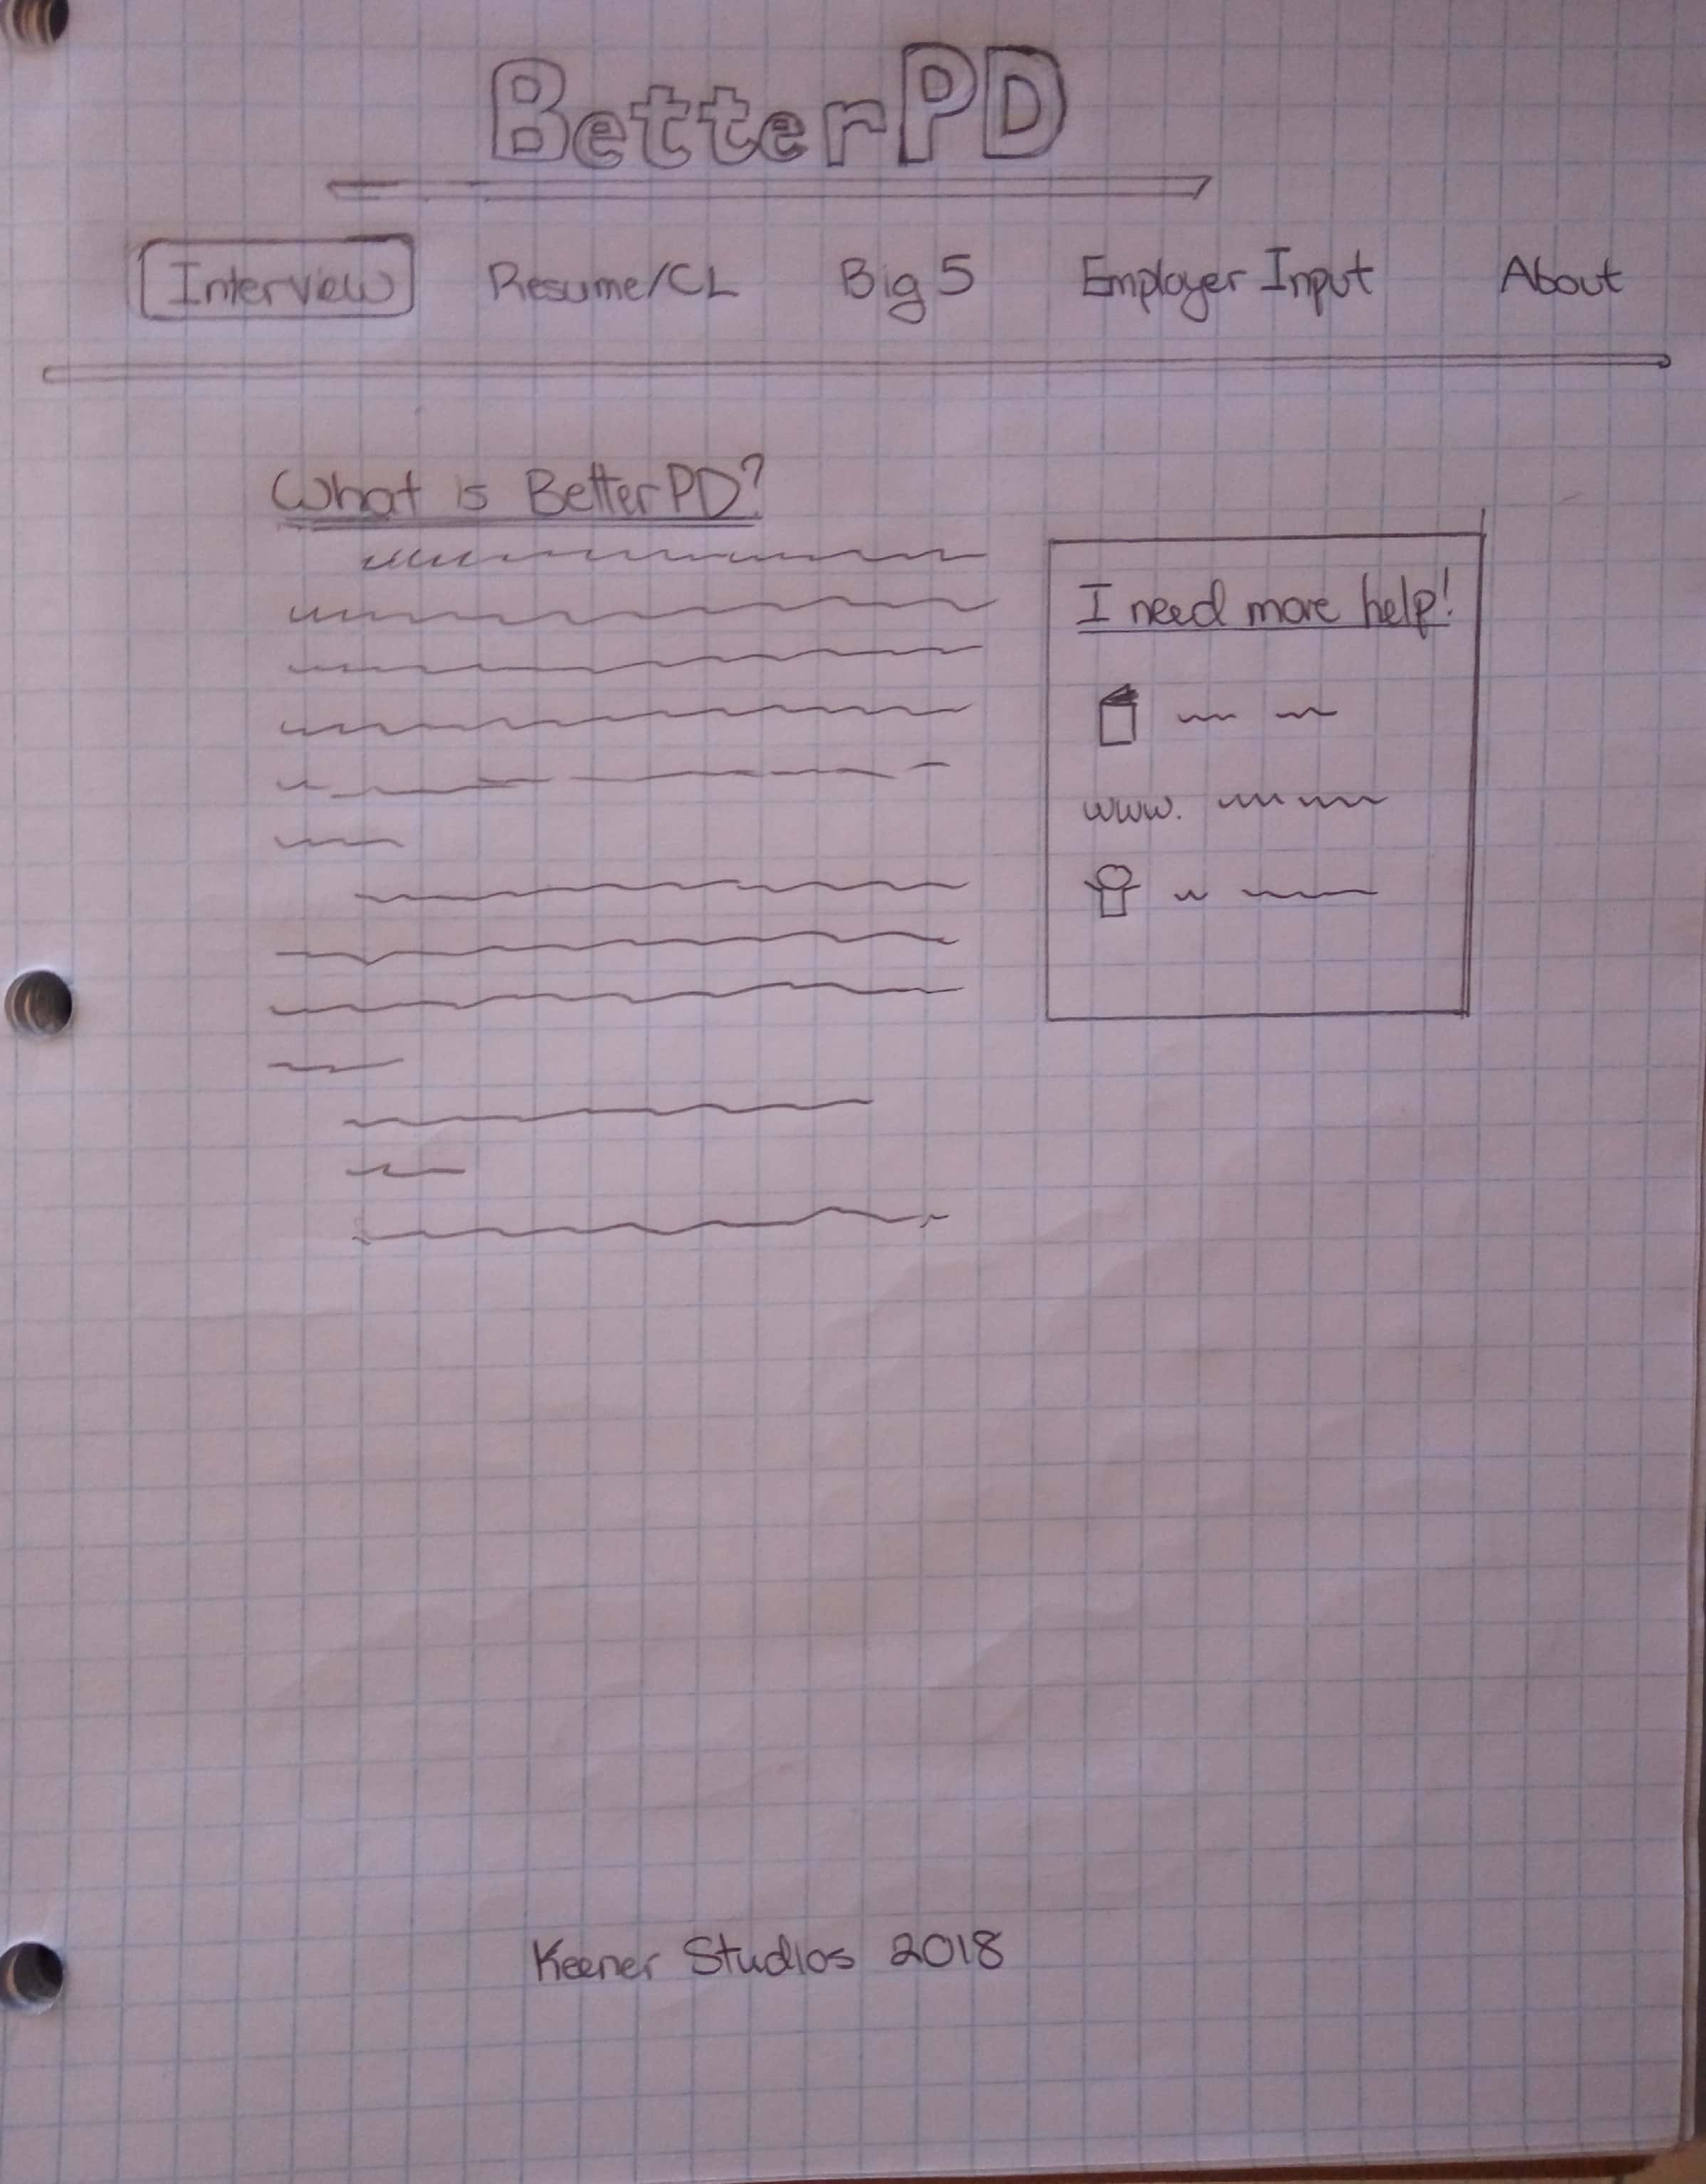 BetterPD
Interview Resume/CL Big 5 Employer Input About
What is BetterPD?
I need more help!
www.
Keener Studios 2018